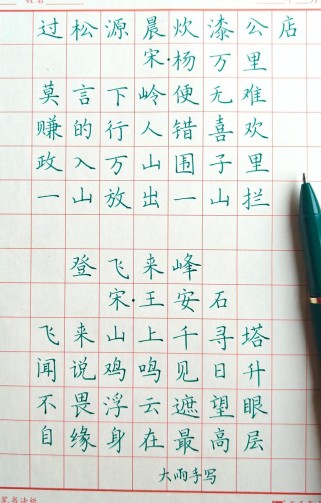 过松源晨炊漆公店
宋·杨万里
莫言下岭便无难
赚的行人错喜欢
政入万山围子里
一山放出一山拦
登飞来峰
宋·王安石
飞来山上千寻塔
闻说鸡鸣见日升
不畏浮云遮望眼
自缘身在最高层
大雨手写